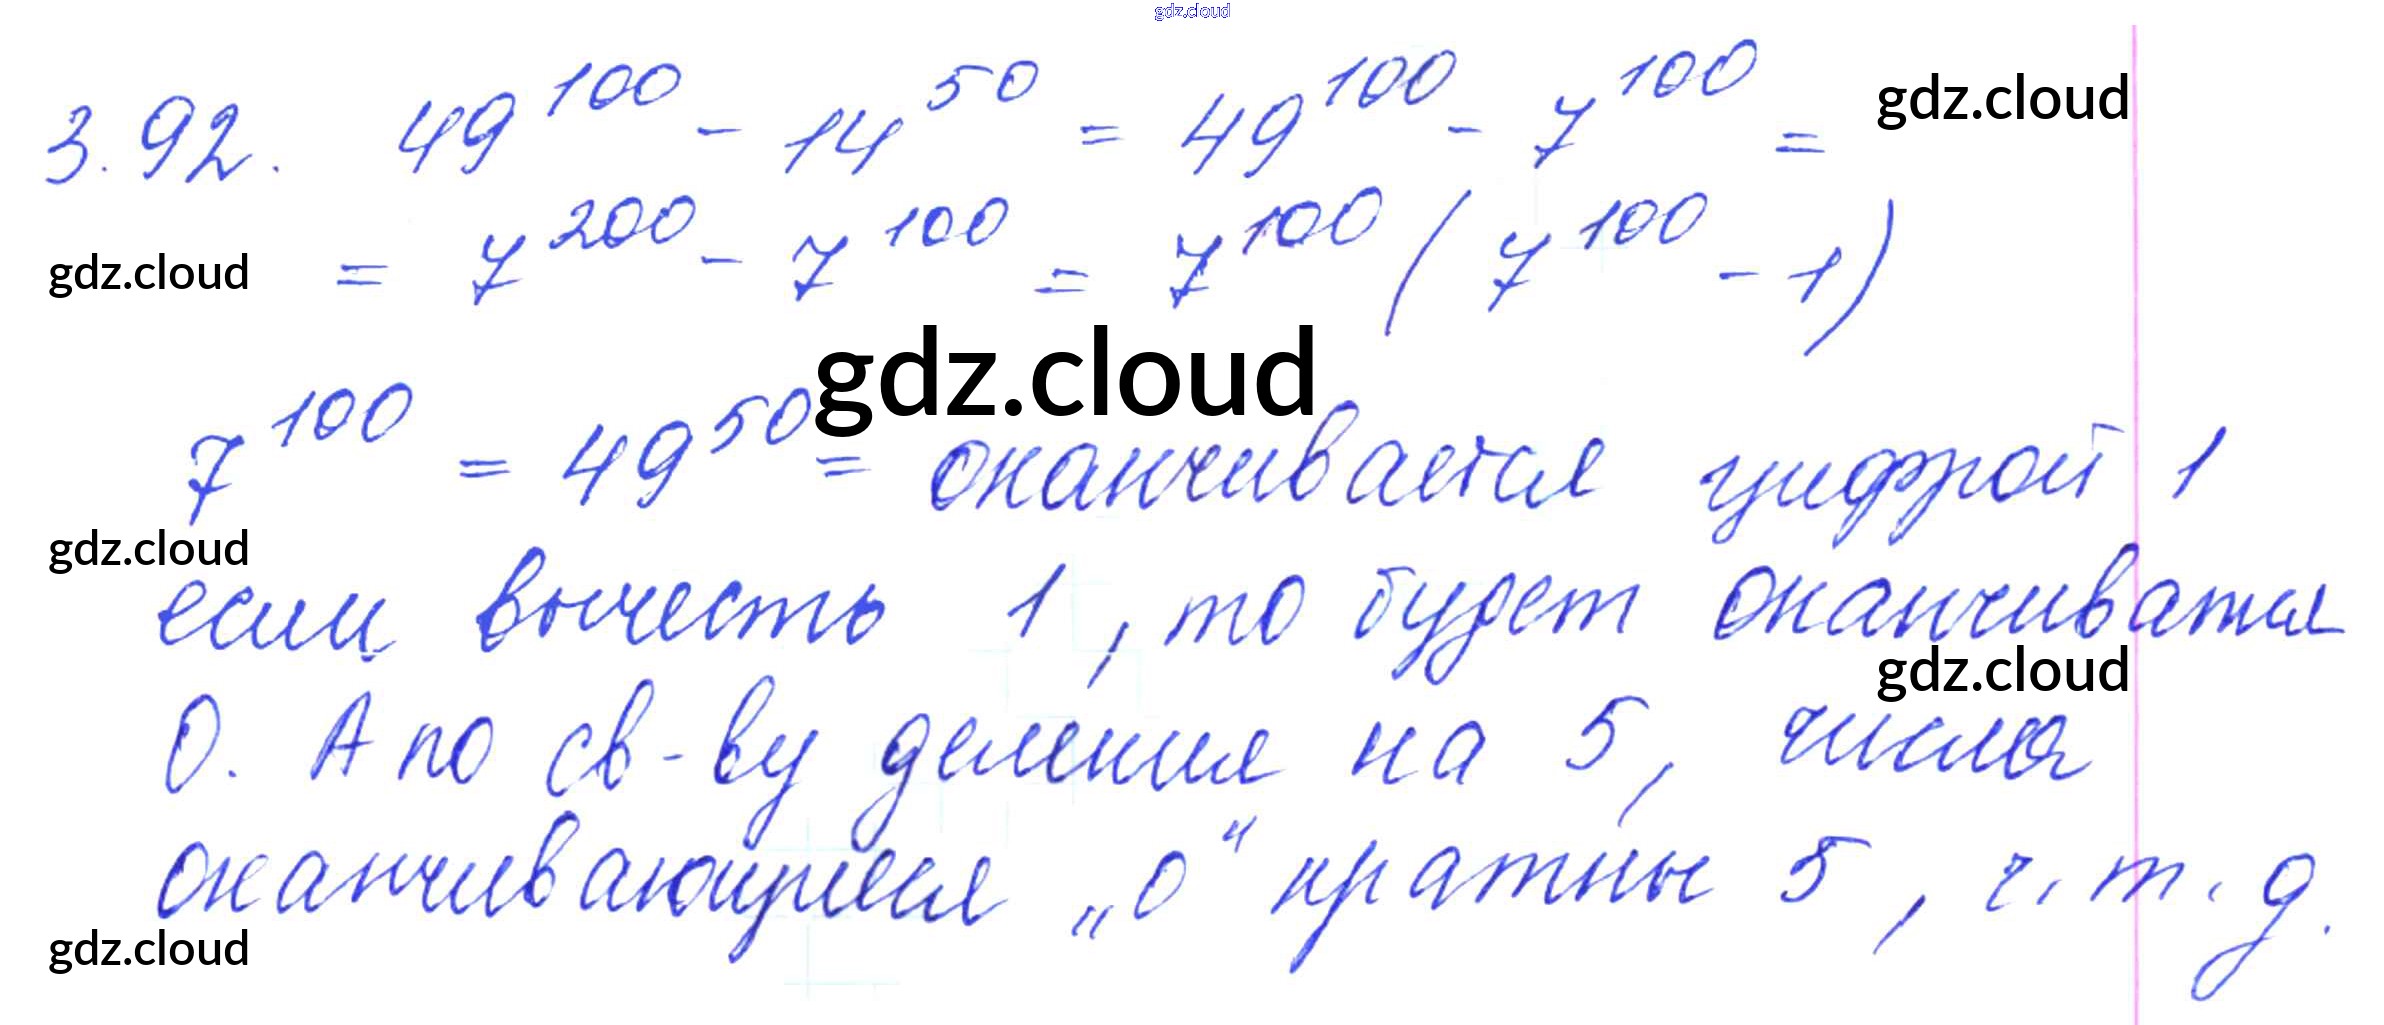 gdz.cloud
3.92. 49^100 - 14^50 = 49^100 - 7^100 =
gdz.cloud
= 7^200 - 7^100 = 7^100 (7^100 - 1)
gdz.cloud
gdz.cloud
7^100 = 49^50 = оканчивается цифрой 1
gdz.cloud
если вычесть 1, то будет оканчиватся
gdz.cloud
0. А по св-ву деления на 5, числа
оканчивающиеся „0“ кратны 5, ч.т.д.
gdz.cloud